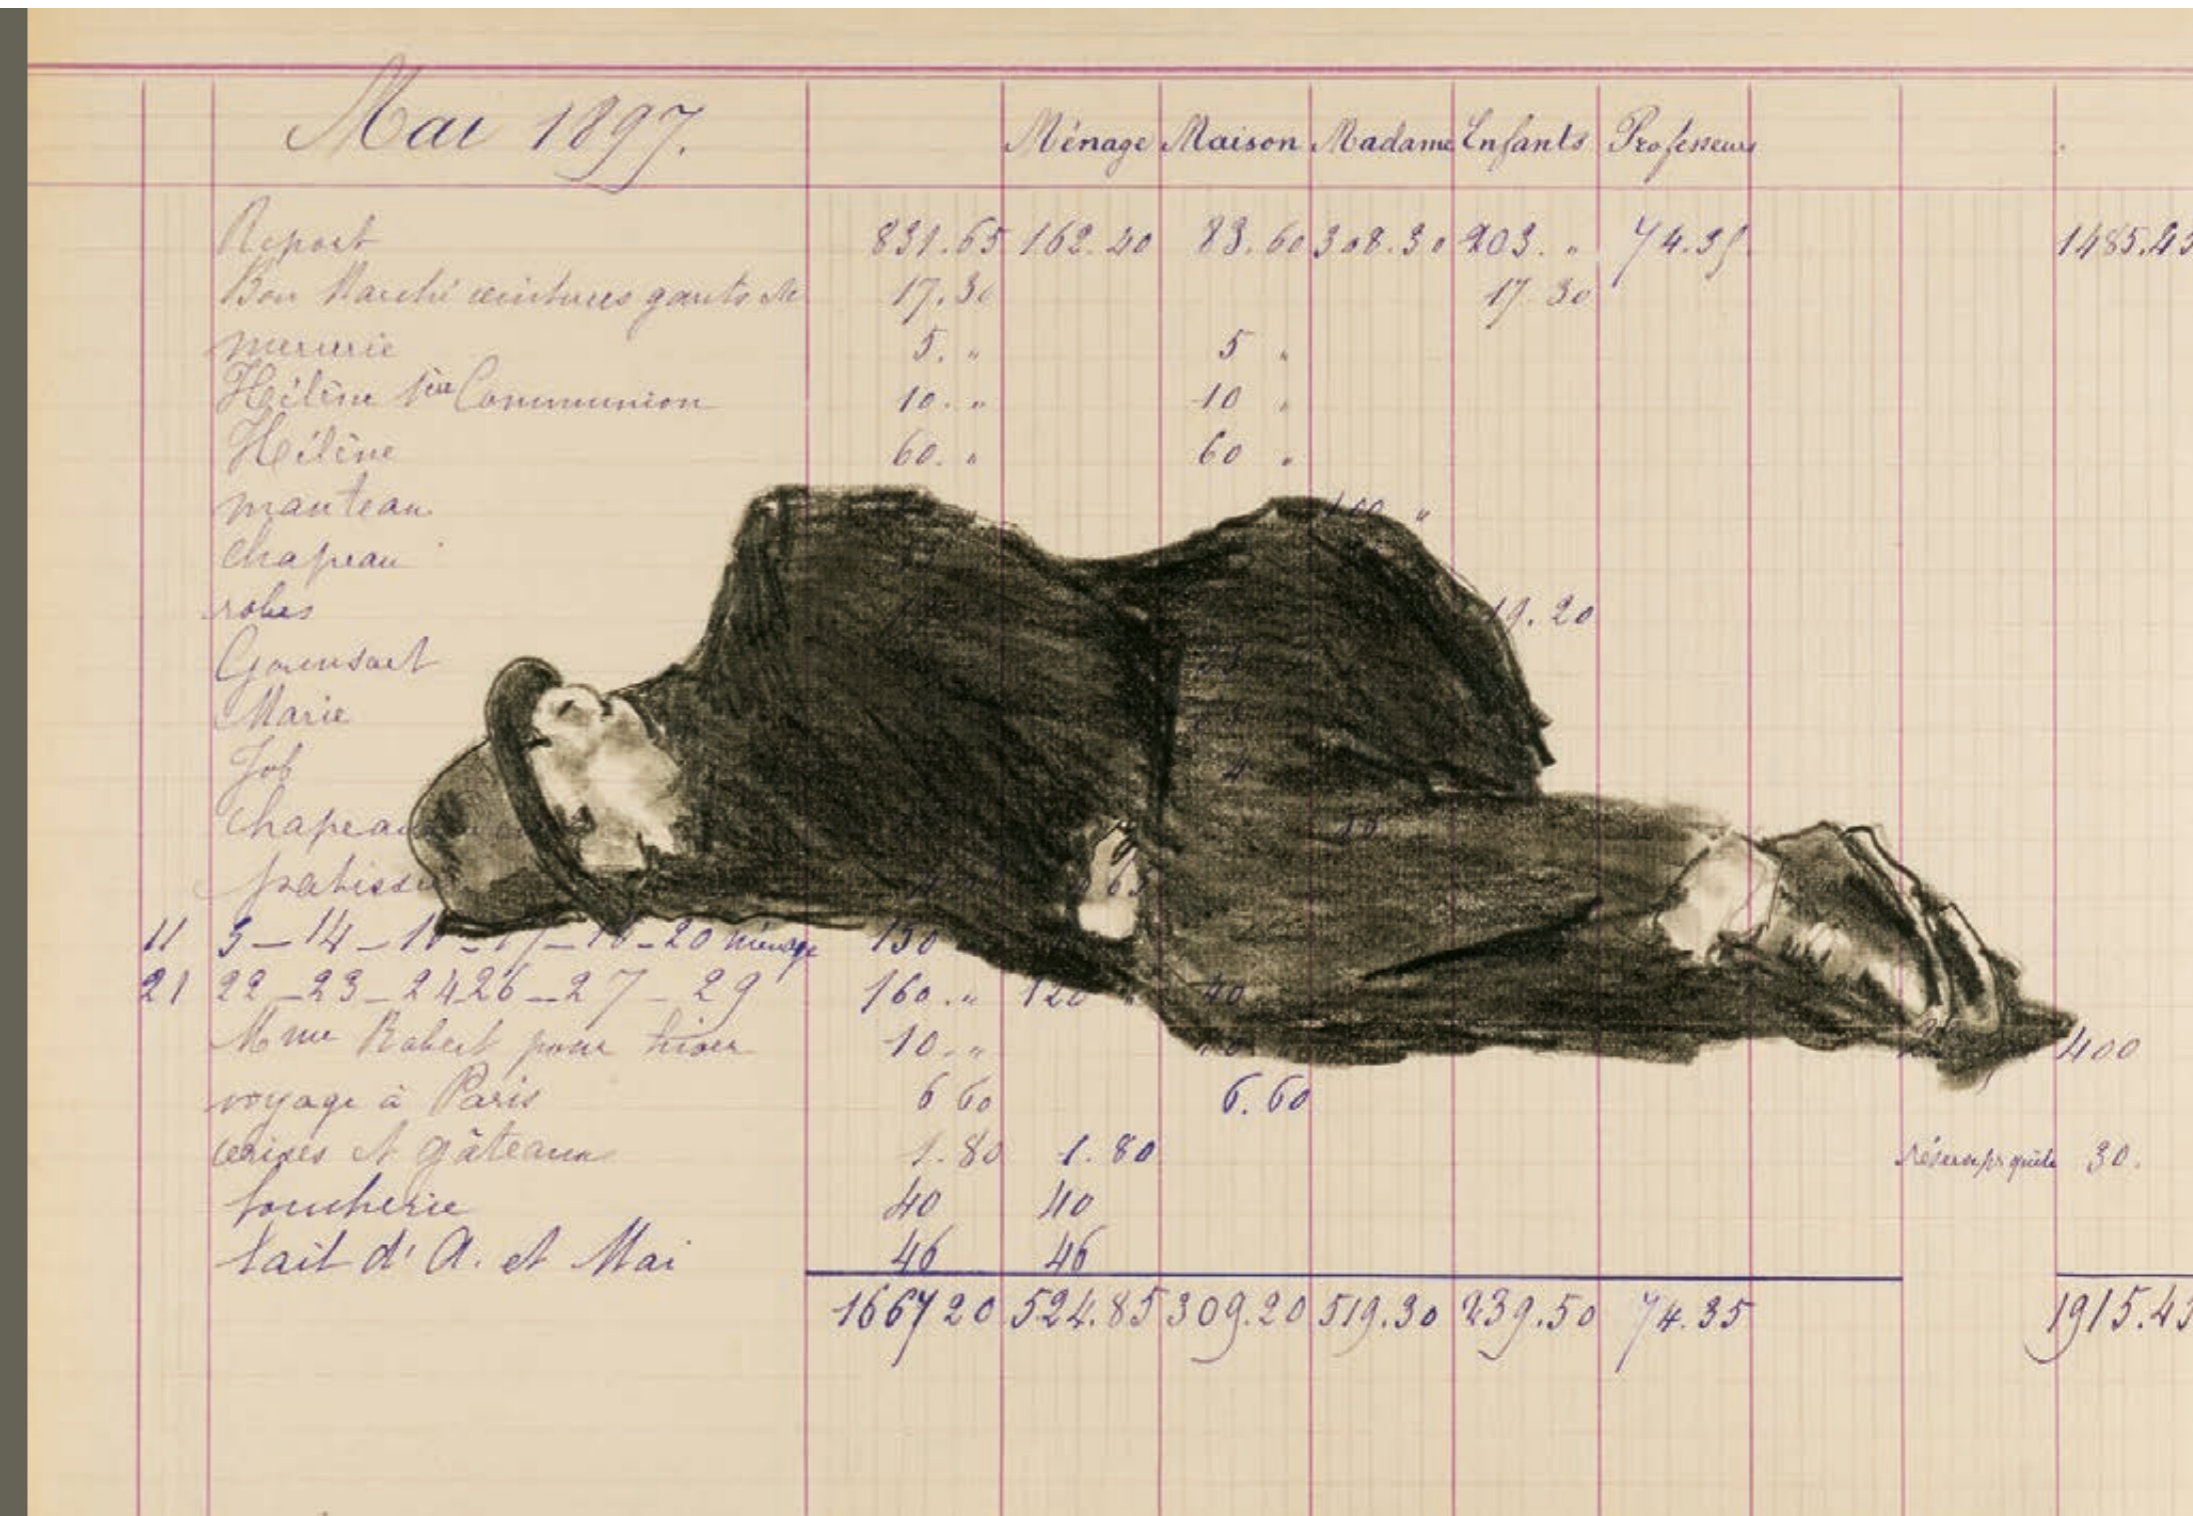 Mai 1897.
Ménage Maison Madame Enfants Professeurs
Report 831.65 162.40 83.60 308.30 203. " 74.35 1485.45
Bon Marché ceintures gants 17.30 17.30
mercerie 5. " 5 "
Hélène 1ère Communion 10. " 10 "
Hélène 60. " 60 "
manteau 100 "
chapeau
robes 19.20
Marie
Job 4
10
11 14 20 ménage 150
21 22 _ 23 _ 24 26 _ 27 _ 29 160. " 120 " 40
Mme Robert pour hiver 10. " 400
voyage à Paris 6 60 6.60
cerises et gâteaux 1.80 1.80 30.
boucherie 40 40
Lait d'A. et Mai 46 46
1667 20 524.85 309.20 519.30 239.50 74.35 1915.45